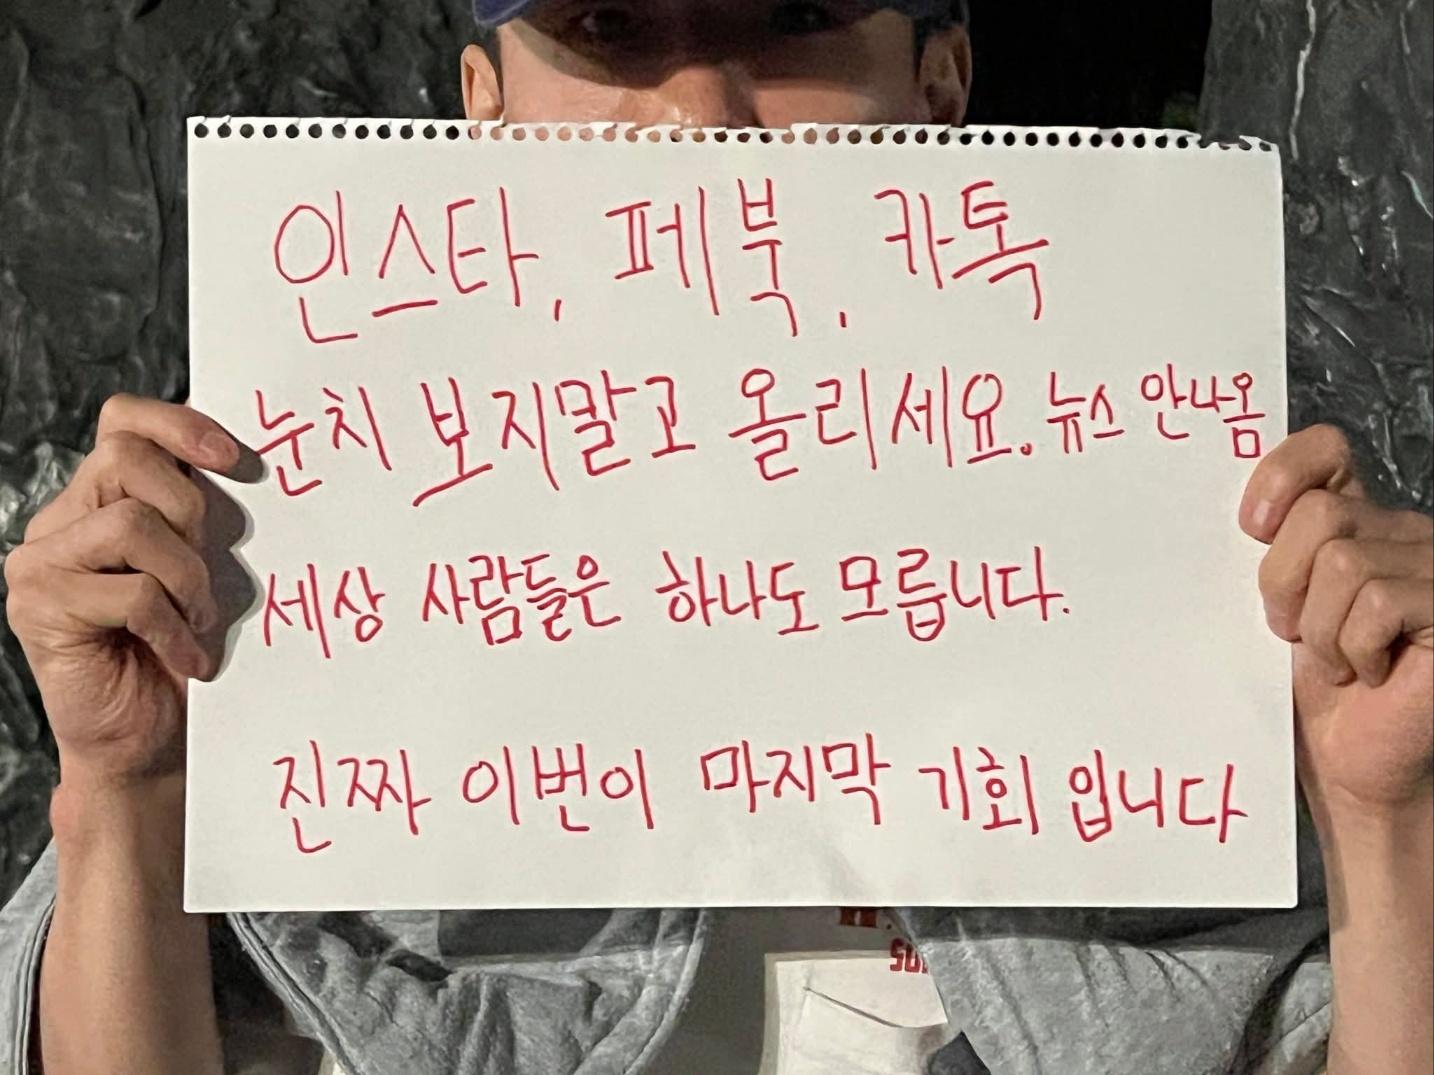 인스타, 페북, 카톡
눈치 보지말고 올리세요. 뉴스 안나옴
세상 사람들은 하나도 모릅니다.
진짜 이번이 마지막 기회 입니다